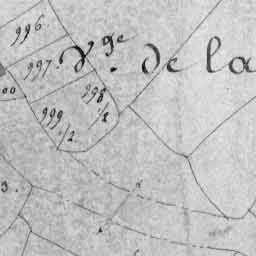 996.
V.ge de la
997.
998.
1/2
00
999.
1/2
3.